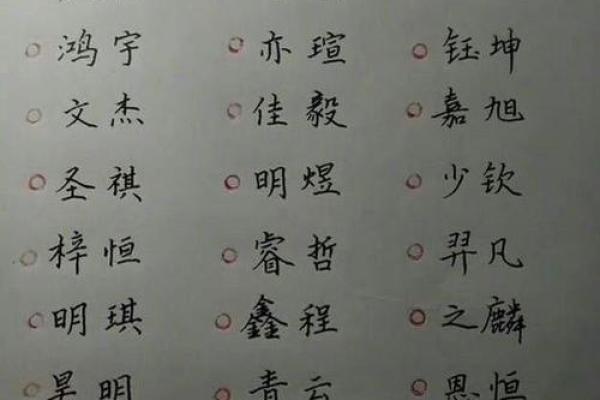 鸿宇 亦瑄 钰坤
文杰 佳毅 嘉旭
圣祺 明煜 少钦
梓恒 睿哲 羿凡
明琪 鑫程 之麟
明 青云 恩恒